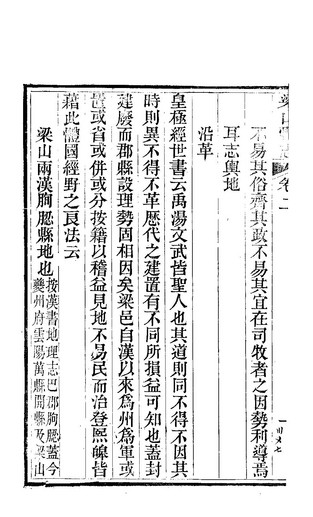 梁山縣志 卷二
不易其俗齊其政不易其宜在司牧者之因勢利導焉
耳志輿地
沿革
皇極經世書云禹湯文武皆聖人也其道則同不得不因其
時則異不得不革歷代之建置有不同所損益可知也蓋封
建廢而郡縣設理勢固相因矣梁邑自漢以來為州為軍或
置或省或併或分按籍以稽益見地不易民而治登熙皞皆
藉此體國經野之良法云
梁山兩漢朐䏰縣地也
按漢書地理志巴郡朐䏰蓋今
夔州府雲陽萬縣開縣及梁山